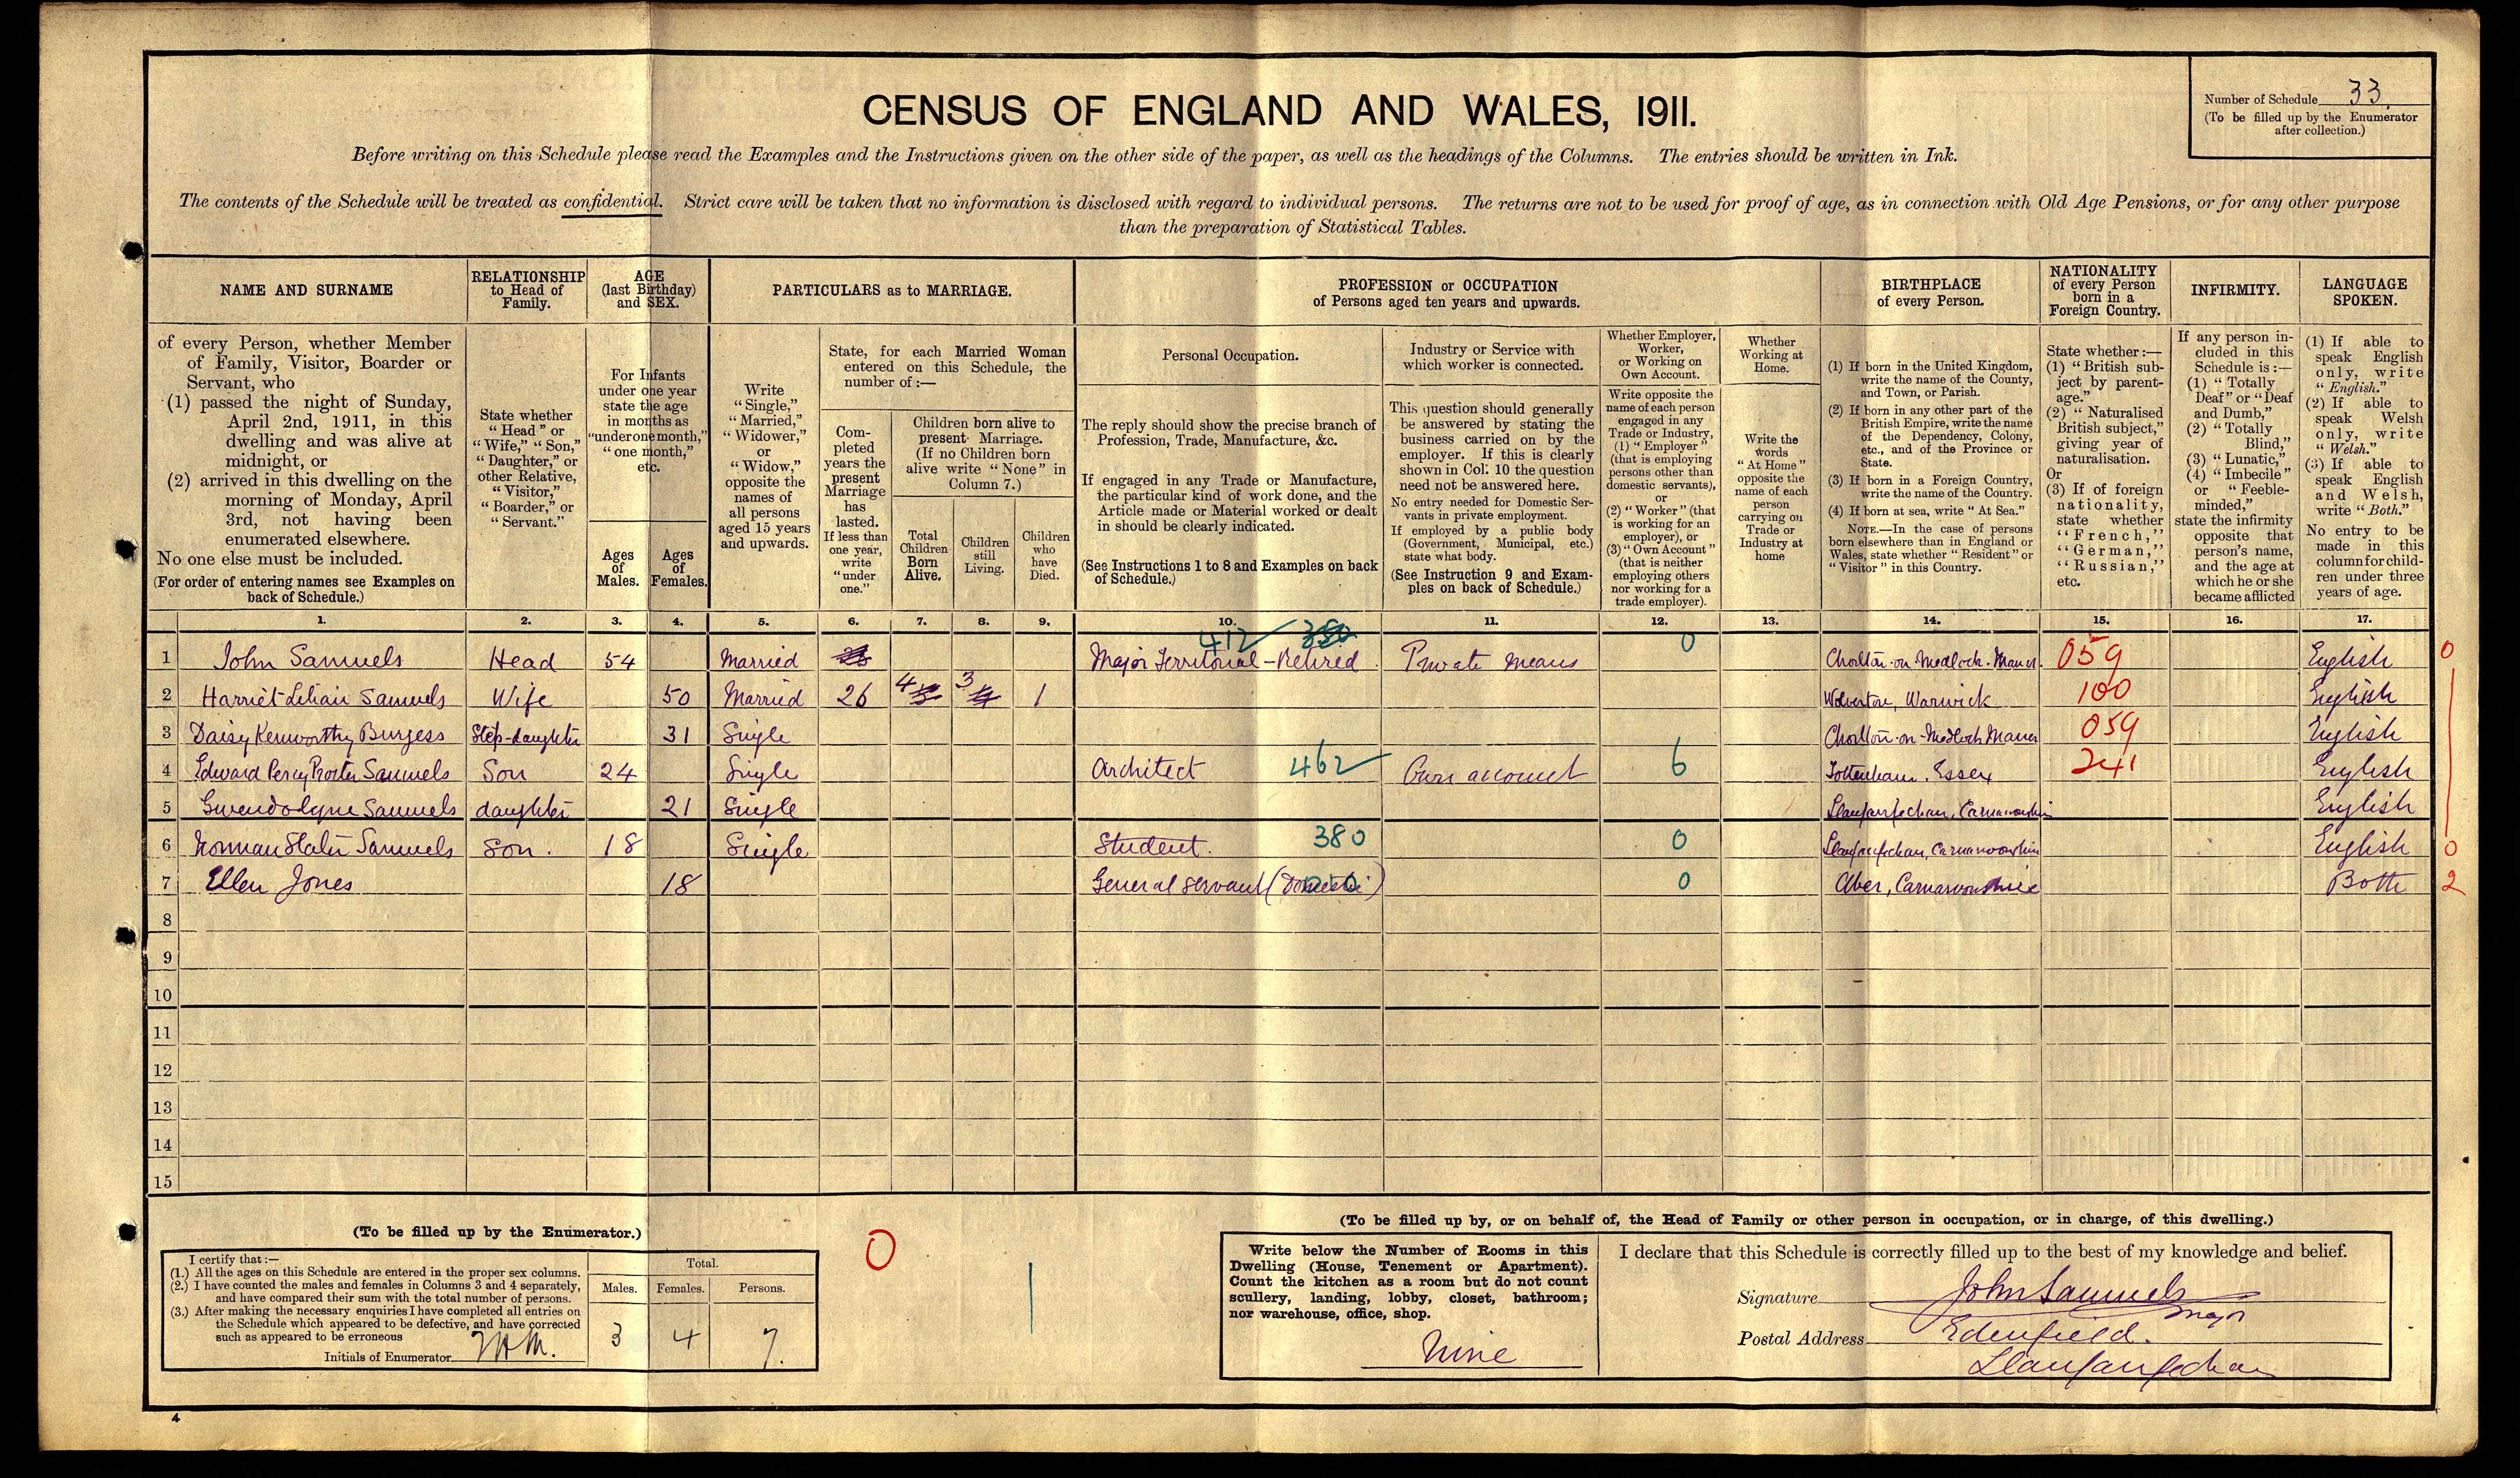 Number of Schedule 33.
(To be filled up by the Enumerator
after collection.)
CENSUS OF ENGLAND AND WALES, 1911.
Before writing on this Schedule please read the Examples and the Instructions given on the other side of the paper, as well as the headings of the Columns. The entries should be written in Ink.
The contents of the Schedule will be treated as confidential. Strict care will be taken that no information is disclosed with regard to individual persons. The returns are not to be used for proof of age, as in connection with Old Age Pensions, or for any other purpose
than the preparation of Statistical Tables.
NAME AND SURNAME
of every Person, whether Member
of Family, Visitor, Boarder or
Servant, who
(1) passed the night of Sunday,
April 2nd, 1911, in this
dwelling and was alive at
midnight, or
(2) arrived in this dwelling on the
morning of Monday, April
3rd, not having been
enumerated elsewhere.
No one else must be included.
(For order of entering names see Examples on
back of Schedule.)
RELATIONSHIP
to Head of
Family.
State whether
"Head" or
"Wife," "Son,"
"Daughter," or
other Relative,
"Visitor,"
"Boarder," or
"Servant."
AGE
(last Birthday)
and SEX.
For Infants
under one year
state the age
in months as
"under one month,"
"one month,"
etc.
Ages
of
Males.
Ages
of
Females.
PARTICULARS as to MARRIAGE.
Write
"Single,"
"Married,"
"Widower,"
or
"Widow,"
opposite the
names of
all persons
aged 15 years
and upwards.
State, for each Married Woman
entered on this Schedule, the
number of:—
Com-
pleted
years the
present
Marriage
has
lasted.
If less than
one year,
write
"under
one."
Children born alive to
present Marriage.
(If no Children born
alive write "None" in
Column 7.)
Total
Children
Born
Alive.
Children
still
Living.
Children
who
have
Died.
PROFESSION or OCCUPATION
of Persons aged ten years and upwards.
Personal Occupation.
The reply should show the precise branch of
Profession, Trade, Manufacture, &c.
If engaged in any Trade or Manufacture,
the particular kind of work done, and the
Article made or Material worked or dealt
in should be clearly indicated.
(See Instructions 1 to 8 and Examples on back
of Schedule.)
Industry or Service with
which worker is connected.
This question should generally
be answered by stating the
business carried on by the
employer. If this is clearly
shown in Col. 10 the question
need not be answered here.
No entry needed for Domestic Ser-
vants in private employment.
If employed by a public body
(Government, Municipal, etc.)
state what body.
(See Instruction 9 and Exam-
ples on back of Schedule.)
Whether Employer,
Worker,
or Working on
Own Account.
Write opposite the
name of each person
engaged in any
Trade or Industry,
(1) "Employer"
(that is employing
persons other than
domestic servants),
or
(2) "Worker" (that
is working for an
employer), or
(3) "Own Account"
(that is neither
employing others
nor working for a
trade employer).
Whether
Working at
Home.
Write the
words
"At Home"
opposite the
name of each
person
carrying on
Trade or
Industry at
home
BIRTHPLACE
of every Person.
(1) If born in the United Kingdom,
write the name of the County,
and Town, or Parish.
(2) If born in any other part of the
British Empire, write the name
of the Dependency, Colony,
etc., and of the Province or
State.
(3) If born in a Foreign Country,
write the name of the Country.
(4) If born at sea, write "At Sea."
NOTE.—In the case of persons
born elsewhere than in England or
Wales, state whether "Resident" or
"Visitor" in this Country.
NATIONALITY
of every Person
born in a
Foreign Country.
State whether:—
(1) "British sub-
ject by parent-
age."
(2) "Naturalised
British subject,"
giving year of
naturalisation.
Or
(3) If of foreign
nationality,
state whether
"French,"
"German,"
"Russian,"
etc.
INFIRMITY.
If any person in-
cluded in this
Schedule is:—
(1) "Totally
Deaf" or "Deaf
and Dumb,"
(2) "Totally
Blind,"
(3) "Lunatic,"
(4) "Imbecile"
or "Feeble-
minded,"
state the infirmity
opposite that
person's name,
and the age at
which he or she
became afflicted
LANGUAGE
SPOKEN.
(1) If able to
speak English
only, write
"English."
(2) If able to
speak Welsh
only, write
"Welsh."
(3) If able to
speak English
and Welsh,
write "Both."
No entry to be
made in this
column for child-
ren under three
years of age.
1. 2. 3. 4. 5. 6. 7. 8. 9. 10. 11. 12. 13. 14. 15. 16. 17.
412 350
1 John Samuels Head 54 Married Major Territorial - Retired Private means 0 Chorlton-on-Medlock. Manr. 059 English 0
2 Harriet Lilian Samuels Wife 50 Married 26 4 3 1 Wolverton, Warwick 100 English
3 Daisy Kenworthy Burgess Step-daughter 31 Single Chorlton-on-Medlock Manr 059 English
4 Edward Percy Procter Samuels Son 24 Single Architect 462 Own account 6 Tottenham, Essex 241 English
5 Gwendolyne Samuels daughter 21 Single Llanfairfechan, Carnarvonshire English
6 Norman Slater Samuels Son. 18 Single Student. 380 0 Llanfairfechan, Carnarvonshire English 0
7 Ellen Jones 18 General Servant (Domestic) 0 Aber, Carnarvonshire Both 2
8
9
10
11
12
13
14
15
(To be filled up by the Enumerator.)
I certify that:—
(1.) All the ages on this Schedule are entered in the proper sex columns.
(2.) I have counted the males and females in Columns 3 and 4 separately,
and have compared their sum with the total number of persons.
(3.) After making the necessary enquiries I have completed all entries on
the Schedule which appeared to be defective, and have corrected
such as appeared to be erroneous
Initials of Enumerator
Total.
Males. Females. Persons.
3 4 7.
0
(To be filled up by, or on behalf of, the Head of Family or other person in occupation, or in charge, of this dwelling.)
Write below the Number of Rooms in this
Dwelling (House, Tenement or Apartment).
Count the kitchen as a room but do not count
scullery, landing, lobby, closet, bathroom;
nor warehouse, office, shop.
Nine
I declare that this Schedule is correctly filled up to the best of my knowledge and belief.
Signature John Samuels
Major
Postal Address Edenfield.
Llanfairfechan
4